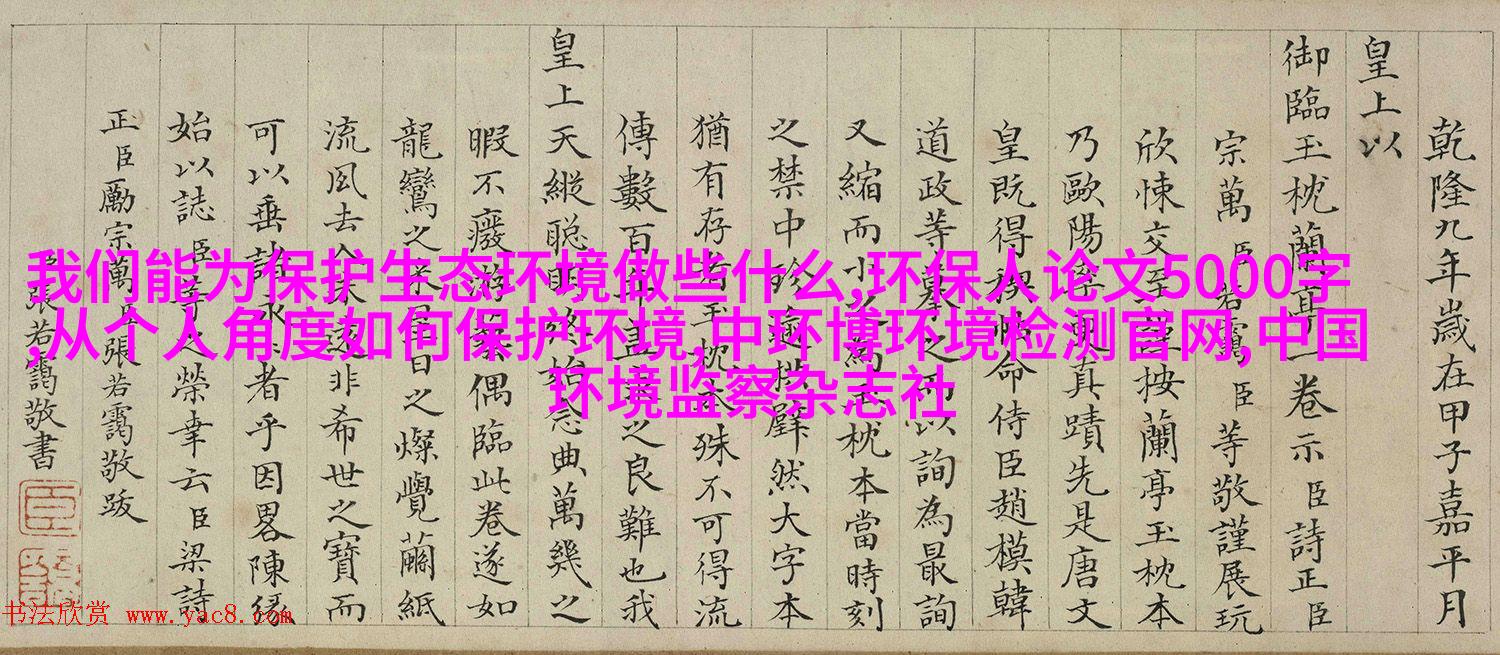 我们能为保护生态环境做些什么,环保人论文5000字
,从个人角度如何保护环境,中环博环境检测官网,中国
环境监察杂志社
乾隆九年歲在甲子嘉平月
皇上以
御臨玉枕蘭亭一卷示臣詩正臣
宗萬臣若靄臣等敬謹展玩
欣悚交至謹按蘭亭玉枕本
乃歐陽率更真蹟先是唐文
皇既得稧帖命侍臣趙模韓
道政等摹之而以詢為最詢
又縮而小之為玉枕本當時刻
之禁中珍逾拱璧然大字本
猶有存者玉枕本殊不可得流
傳數百年盡之良難也我
皇上天縱聰明終始念典萬幾之
暇不廢游藝偶臨此卷遂如
龍鸞之采日之燦覺繭紙
流風去人未遠非希世之寶而
可以垂諸永者乎因畧陳緣
始以誌臣等之榮幸云臣梁詩
正臣勵宗萬臣張若靄敬跋
臣張若靄敬書
书法欣赏 www.yac8.com